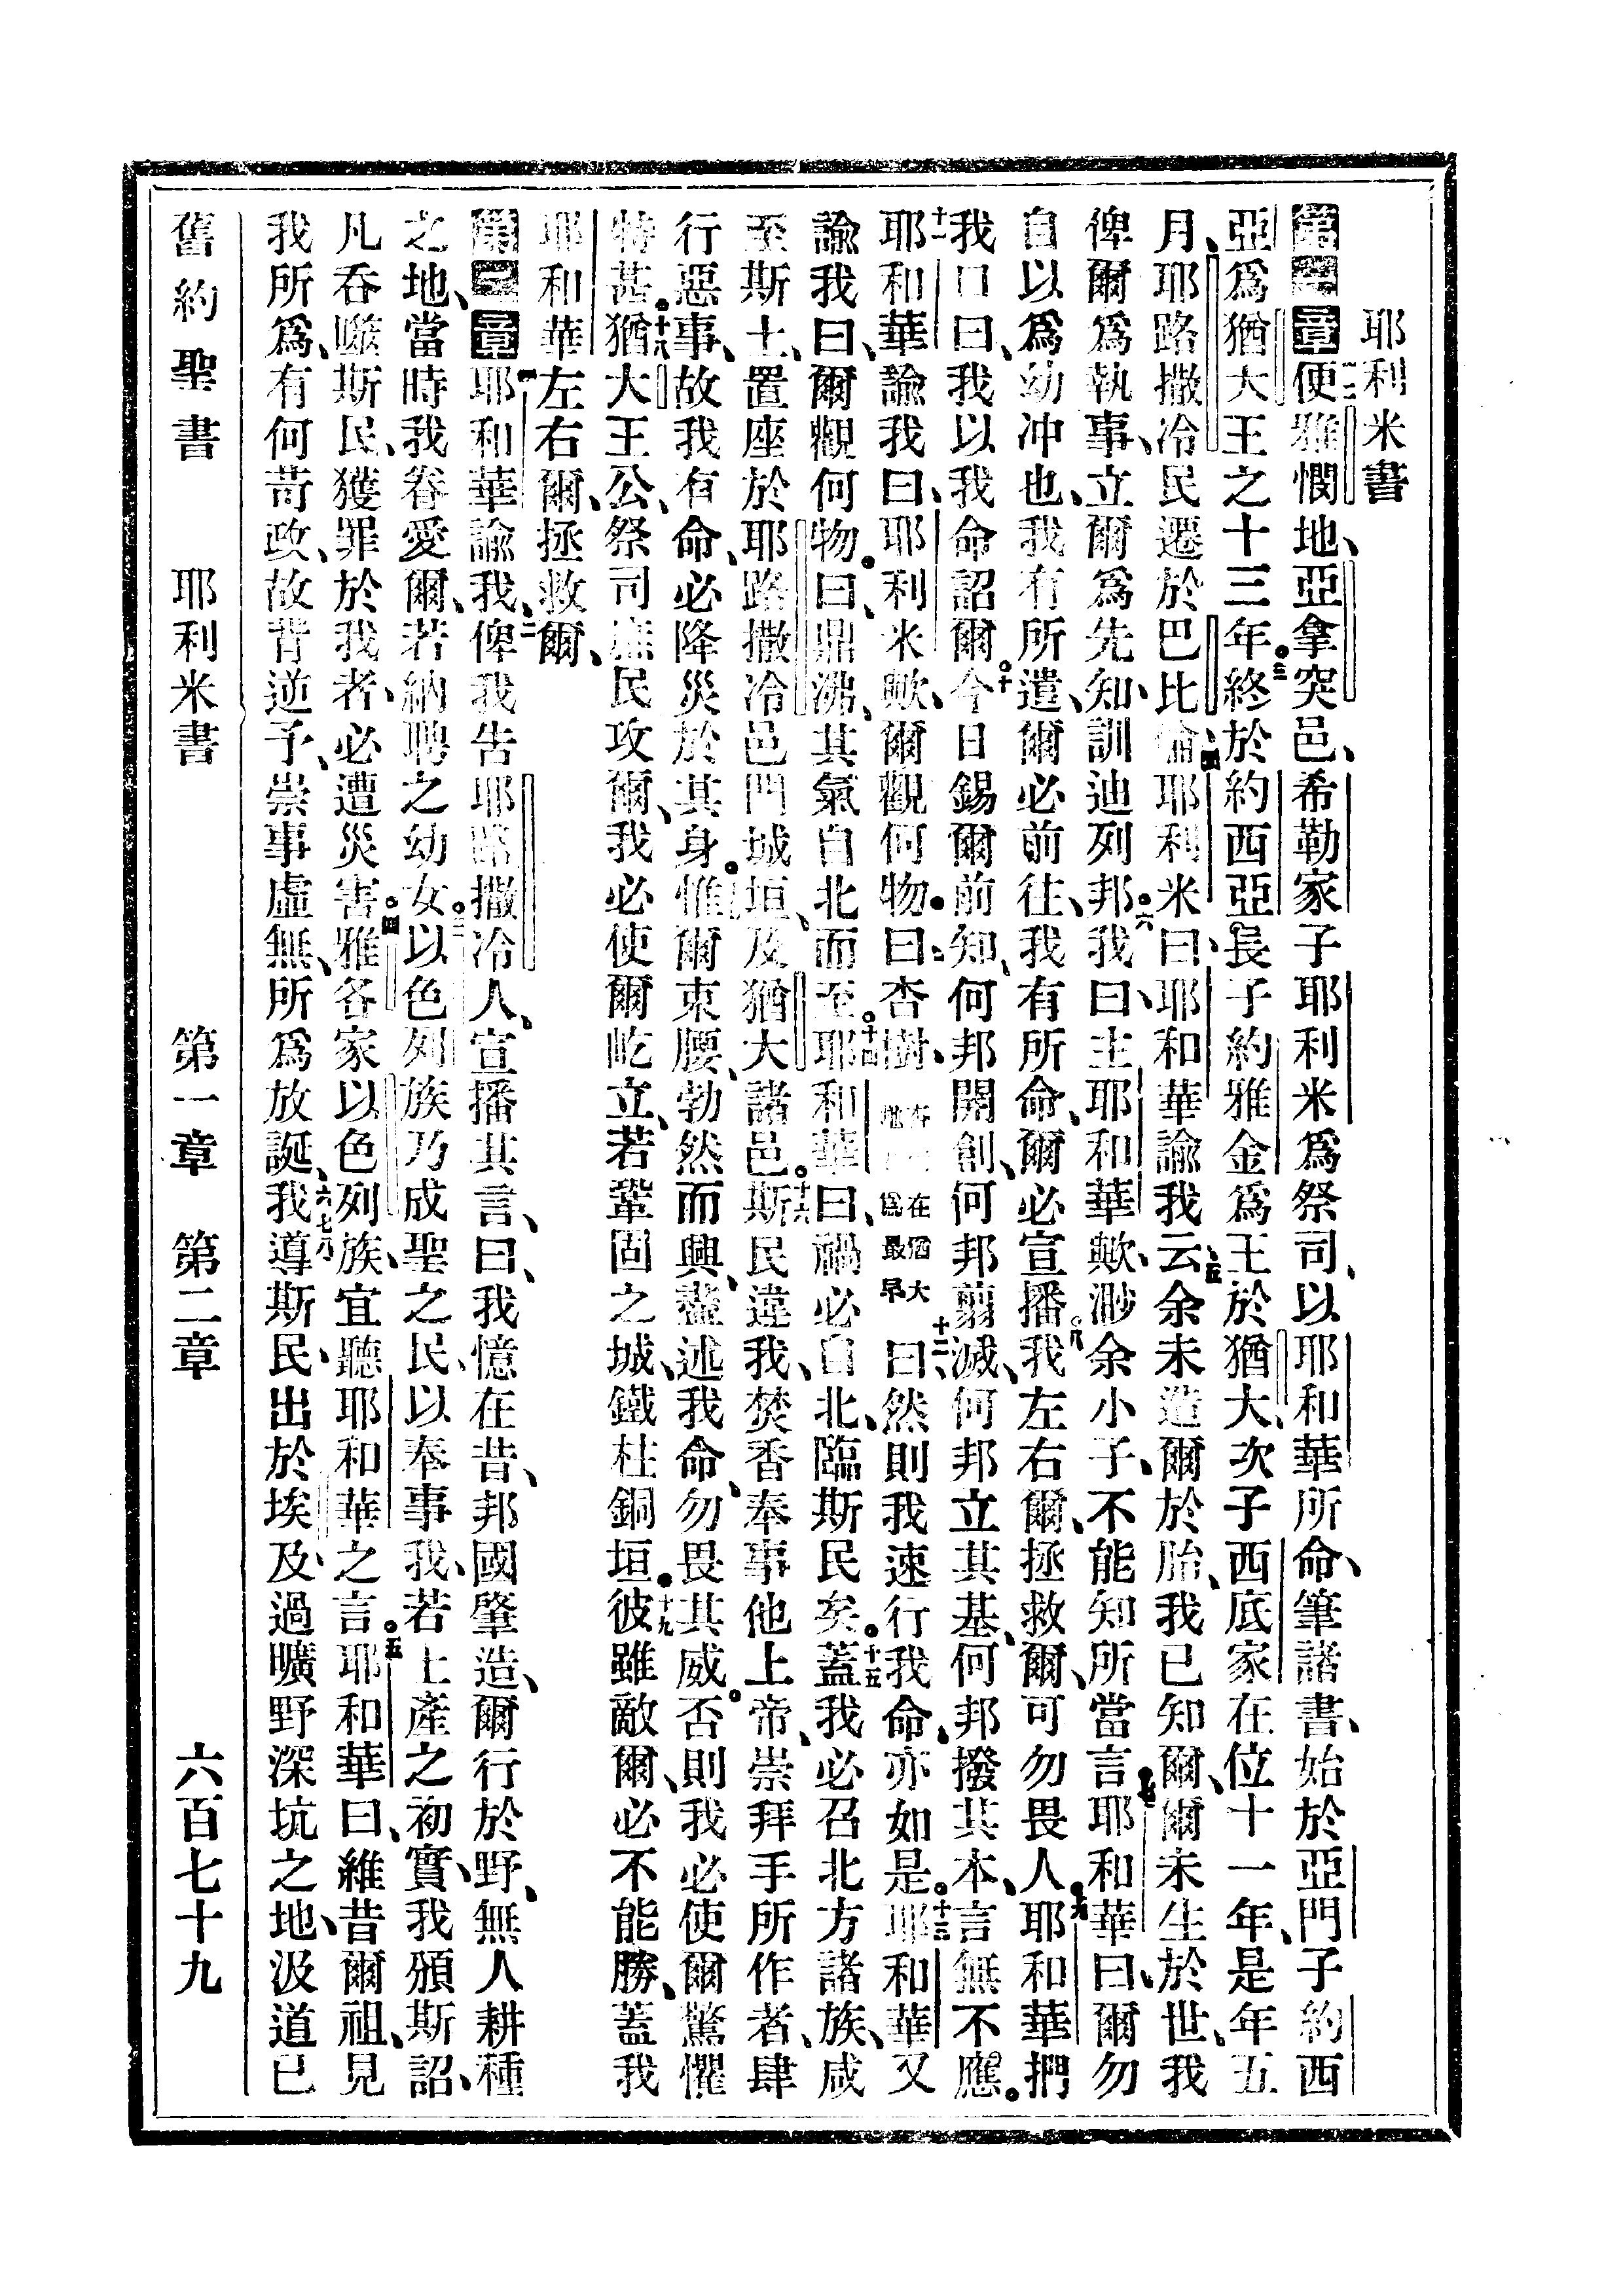 耶利米書
第一章 一二便雅憫地、亞拿突邑、希勒家子耶利米爲祭司、以耶和華所命、筆諸書、始於亞門子約西
亞爲猶大王之十三年。三終於約西亞長子約雅金爲王於猶大、次子西底家在位十一年、是年五
月、耶路撒冷民遷於巴比倫、四耶利米曰、耶和華諭我云、五余未造爾於胎、我已知爾、爾未生於世、我
俾爾爲執事、立爾爲先知、訓迪列邦。六我曰、主耶和華歟、渺余小子、不能知所當言。七耶和華曰、爾勿
自以爲幼冲也、我有所遣、爾必前往、我有所命、爾必宣播。八我左右爾、拯救爾、可勿畏人。九耶和華捫
我口曰、我以我命詔爾。十今日錫爾前知、何邦開創、何邦翦滅、何邦立其基、何邦撥其本、言無不應。
十一耶和華諭我曰、耶利米歟、爾觀何物。曰、杏樹、在猶大爲最早十二曰、然則我速行我命、亦如是。十三耶和華又
諭我曰、爾觀何物。曰、鼎沸、其氣自北而至。十四耶和華曰、禍必自北、臨斯民矣。十五蓋我必召北方諸族、咸
至斯土、置座於耶路撒冷邑門城垣、及猶大諸邑。十六斯民違我、焚香奉事他上帝、崇拜手所作者、肆
行惡事、故我有命、必降災於其身。惟爾束腰、勃然而興、盡述我命、勿畏其威。否則我必使爾驚懼
特甚。十八猶大王公、祭司庶民攻爾、我必使爾屹立、若鞏固之城、鐵柱銅垣。十九彼雖敵爾、必不能勝、蓋我
耶和華左右爾、拯救爾、
第二章 一耶和華諭我、二俾我告耶路撒冷人、宣播其言、曰、我憶在昔、邦國肇造、爾行於野、無人耕種
之地、當時我眷愛爾、若納聘之幼女。三以色列族乃成聖之民、以奉事我、若土產之初實、我頒斯詔、
凡吞噬斯民、獲罪於我者、必遭災害。四雅各家以色列族、宜聽耶和華之言。五耶和華曰、維昔爾祖、見
我所爲、有何苛政、故背逆予、崇事虛無、所爲放誕、六七我導斯民、出於埃及、過曠野深坑之地、汲道已
舊約聖書 耶利米書 第一章 第二章 六百七十九